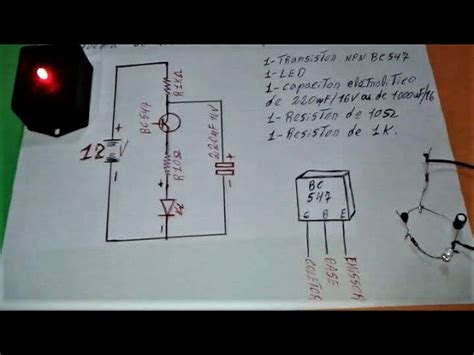 1- Transistor NPN BC547
1- LED
1- capacitor eletrolitico
de 220mF/16V ou de 1000uF/16
1- Resistor de 10Ω
1- Resistor de 1K.
R1KΩ
BC547
+
12V
-
R10Ω
220mF 16V
+
-
+
-
BC
547
C B E
COLETOR
BASE
EMISSOR